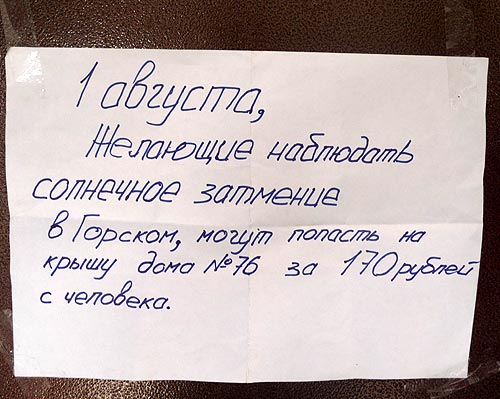 1 августа,
Желающие наблюдать
солнечное затмение
в Горском, могут попасть на
крышу дома №76 за 170 рублей
с человека.